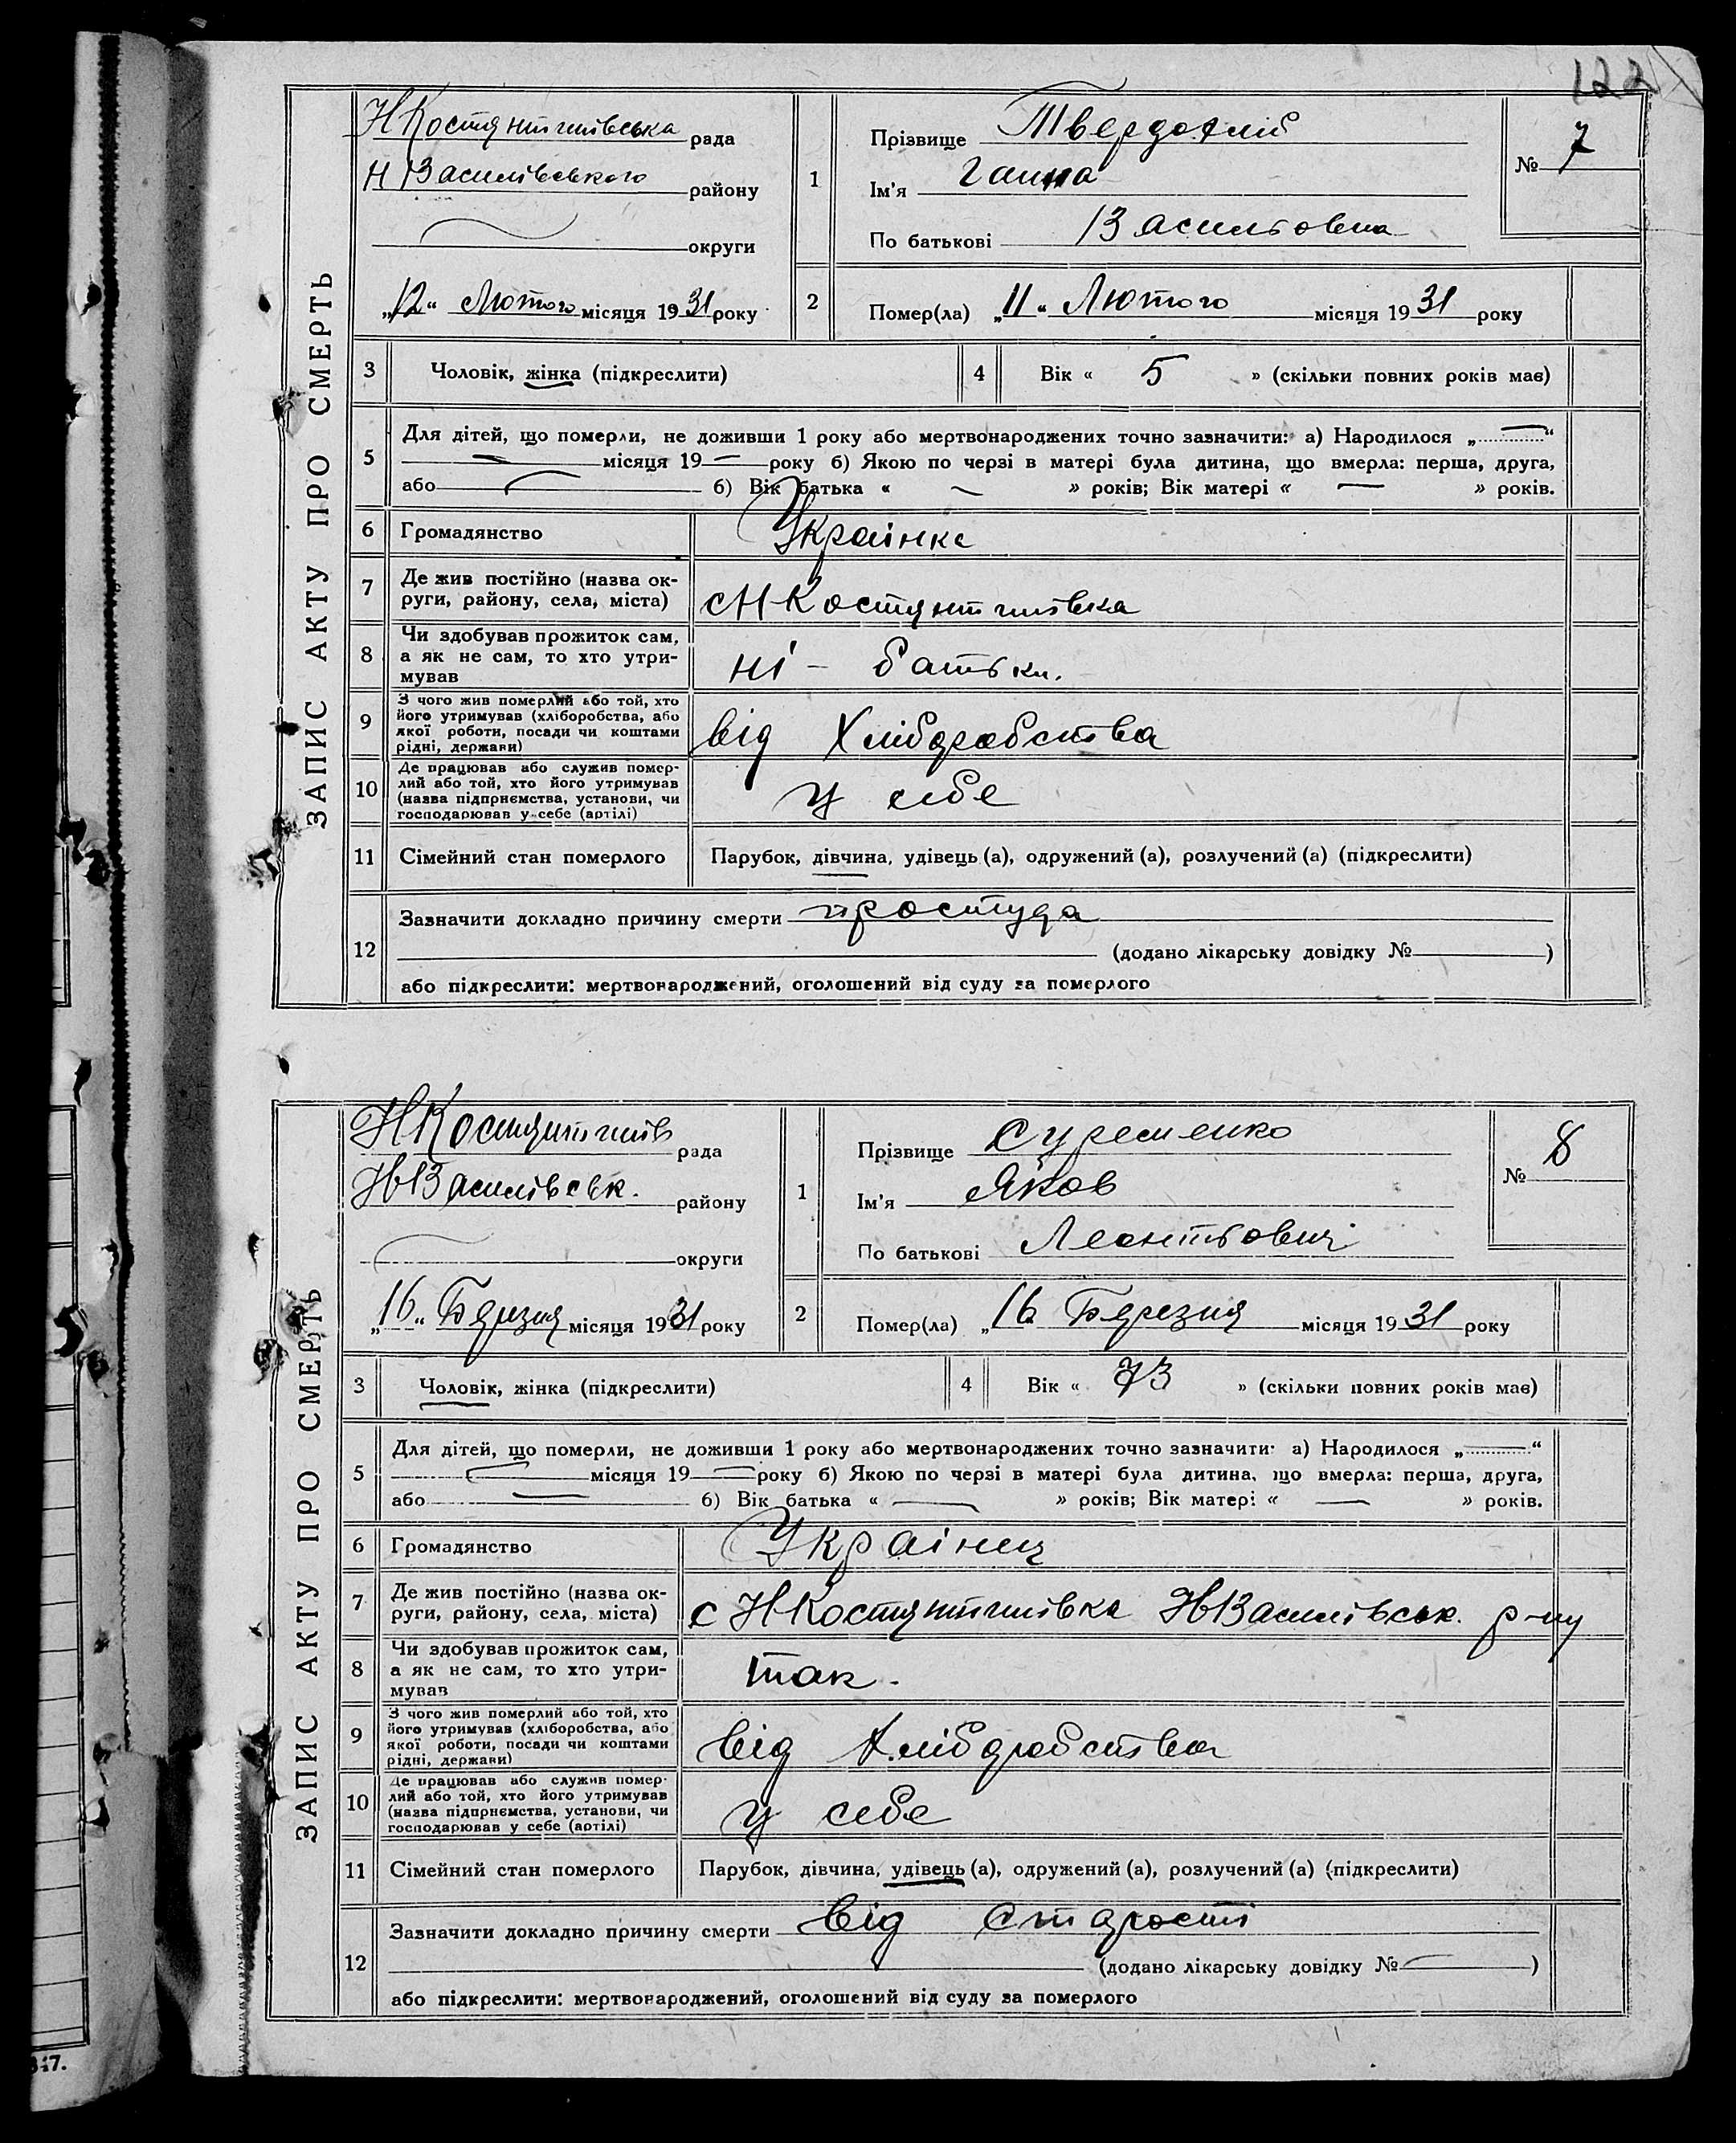 122
ЗАПИС АКТУ ПРО СМЕРТЬ
НКостянтинівська рада
Н Василівського району
округи
„12“ Лютого місяця 1931 року
1
Прізвище Твердохліб
Ім'я Ганна
По батькові Васильовна
№ 7
2
Помер(ла) „11“ Лютого місяця 1931 року
3 Чоловік, жінка (підкреслити)
4 Вік « 5 » (скільки повних років має)
5
Для дітей, що померли, не доживши 1 року або мертвонароджених точно зазначити: а) Народилося „—“
— місяця 19— року б) Якою по черзі в матері була дитина, що вмерла: перша, друга,
або — б) Вік батька « — » років; Вік матері « — » років.
6 Громадянство Українка
7 Де жив постійно (назва ок-
руги, району, села, міста) с НКостянтинівка
8 Чи здобував прожиток сам,
а як не сам, то хто утри-
мував ні - батьки.
9 З чого жив померлий або той, хто
його утримував (хліборобства, або
якої роботи, посади чи коштами
рідні, держави) від Хліборобства
10 Де працював або служив помер-
лий або той, хто його утримував
(назва підприємства, установи, чи
господарював у себе (артілі) у себе
11 Сімейний стан померлого Парубок, дівчина, удівець (а), одружений (а), розлучений (а) (підкреслити)
12
Зазначити докладно причину смерти простуда
(додано лікарську довідку №)
або підкреслити: мертвонароджений, оголошений від суду за померлого
ЗАПИС АКТУ ПРО СМЕРТЬ
НКостянтинів рада
НВасилівськ. району
округи
„16“ Березня місяця 1931 року
1
Прізвище
Ім'я Яков
По батькові Леонтьович
№ 8
2
Помер(ла) „16 Березня місяця 1931 року
3 Чоловік, жінка (підкреслити)
4 Вік « 73 » (скільки повних років має)
5
Для дітей, що померли, не доживши 1 року або мертвонароджених точно зазначити: а) Народилося „—“
— місяця 19— року б) Якою по черзі в матері була дитина, що вмерла: перша, друга,
або — б) Вік батька « — » років; Вік матері « — » років.
6 Громадянство Українец
7 Де жив постійно (назва ок-
руги, району, села, міста) с НКостянтинівка НВасилівськ. р-ну
8 Чи здобував прожиток сам,
а як не сам, то хто утри-
мував так.
9 З чого жив померлий або той, хто
його утримував (хліборобства, або
якої роботи, посади чи коштами
рідні, держави) від Хліборобства
10 Де працював або служив помер-
лий або той, хто його утримував
(назва підприємства, установи, чи
господарював у себе (артілі) у себе
11 Сімейний стан померлого Парубок, дівчина, удівець (а), одружений (а), розлучений (а) (підкреслити)
12
Зазначити докладно причину смерти від старости
(додано лікарську довідку № —)
або підкреслити: мертвонароджений, оголошений від суду за померлого